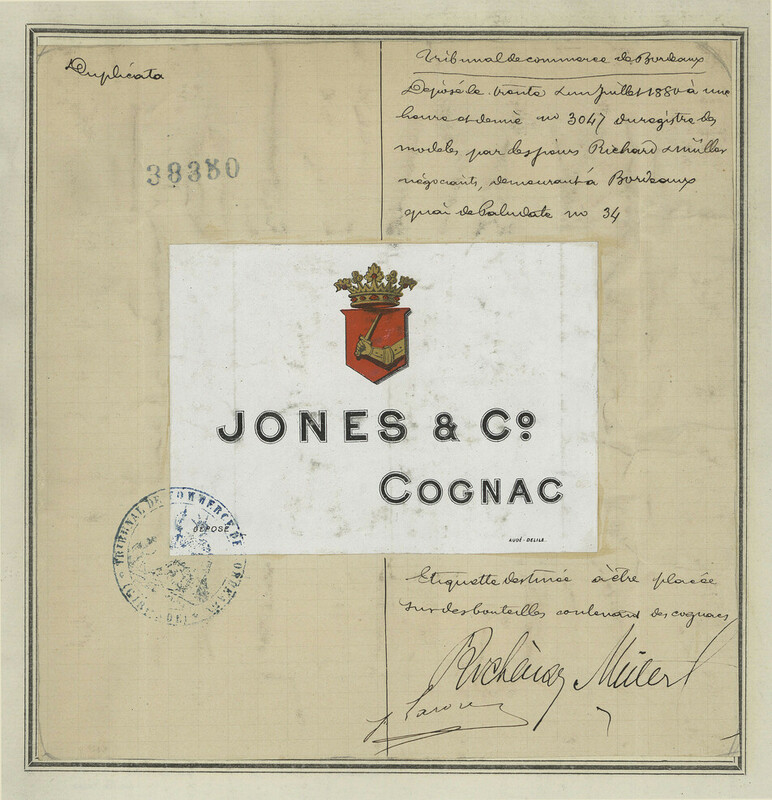 Duplicata
38350
Tribunal de commerce de Bordeaux
Déposé le trente Juillet 1880 à une
heure et demie no 3047 du registre des
modèles par des sieurs Richard & Müller
négociants, demeurant à Bordeaux
quai de Paludate no 34
JONES & Co
COGNAC
DÉPOSÉ
AUDÉ-DELILE.
TRIBUNAL DE COMMERCE DE BORDEAUX
Etiquette destinée à être placée
sur des bouteilles contenant des cognacs
Richard Müller